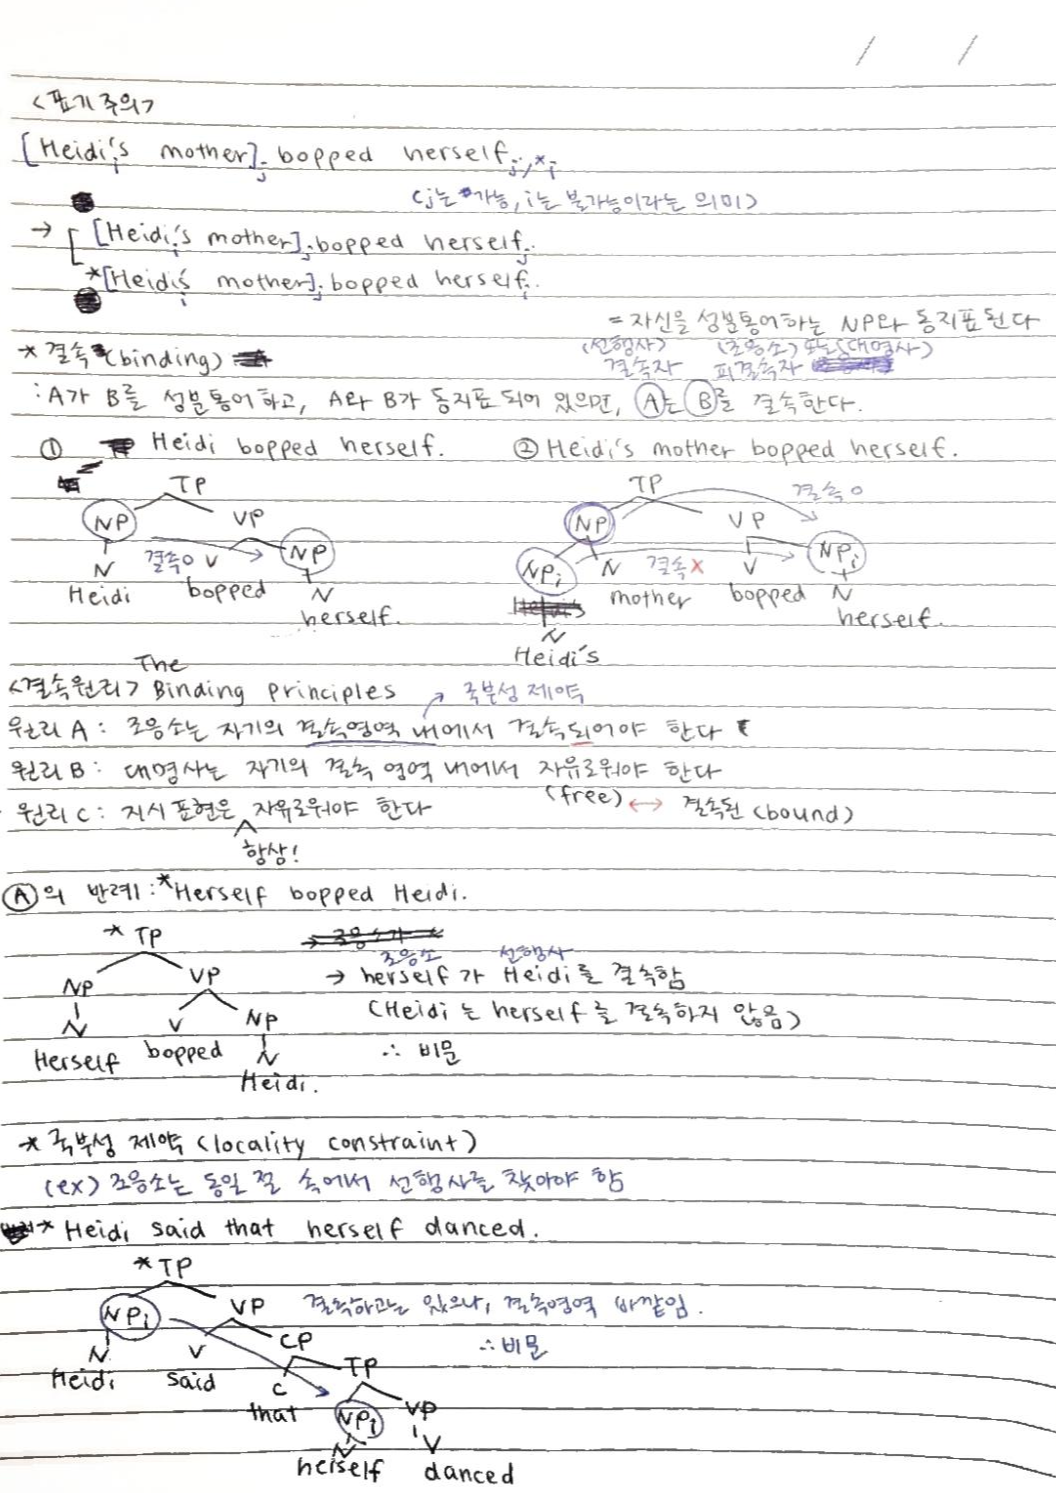 / /
<표기 주의>
[Heidi's mother]j bopped herself j/*i
i
(j는 가능, i는 불가능이라는 의미)
→ [ [Heidi's mother]j bopped herself j.
i
*[Heidi's mother]j bopped herself i.
i
= 자신을 성분통어하는 NP와 동지표된다
(선행사) (조응소) 또는 (대명사)
* 결속 (binding) 결속자 피결속자
: A가 B를 성분통어하고, A와 B가 동지표 되어 있으면, A는 B를 결속한다.
① Heidi bopped herself. ② Heidi's mother bopped herself.
TP TP 결속 o
NP VP NP VP
N 결속o V NP NPi N 결속x V NPi
Heidi bopped N mother bopped N
herself. herself.
N
Heidi's
The
<결속원리> Binding Principles 국부성 제약
원리 A: 조응소는 자기의 결속영역 내에서 결속되어야 한다
원리 B: 대명사는 자기의 결속 영역 내에서 자유로워야 한다
(free) ↔ 결속된 (bound)
원리 C: 지시 표현은 자유로워야 한다
항상!
Ⓐ의 반례: *Herself bopped Heidi.
* TP
조응소 선행사
NP VP → herself가 Heidi를 결속함
N V NP (Heidi는 herself를 결속하지 않음)
Herself bopped N ∴ 비문
Heidi.
* 국부성 제약 (locality constraint)
(ex) 조응소는 동일 절 속에서 선행사를 찾아야 함
* Heidi said that herself danced.
* TP
NPi VP 결속하고는 있으나, 결속영역 바깥임.
N V CP ∴ 비문
Heidi said C TP
that NPi VP
N V
herself danced